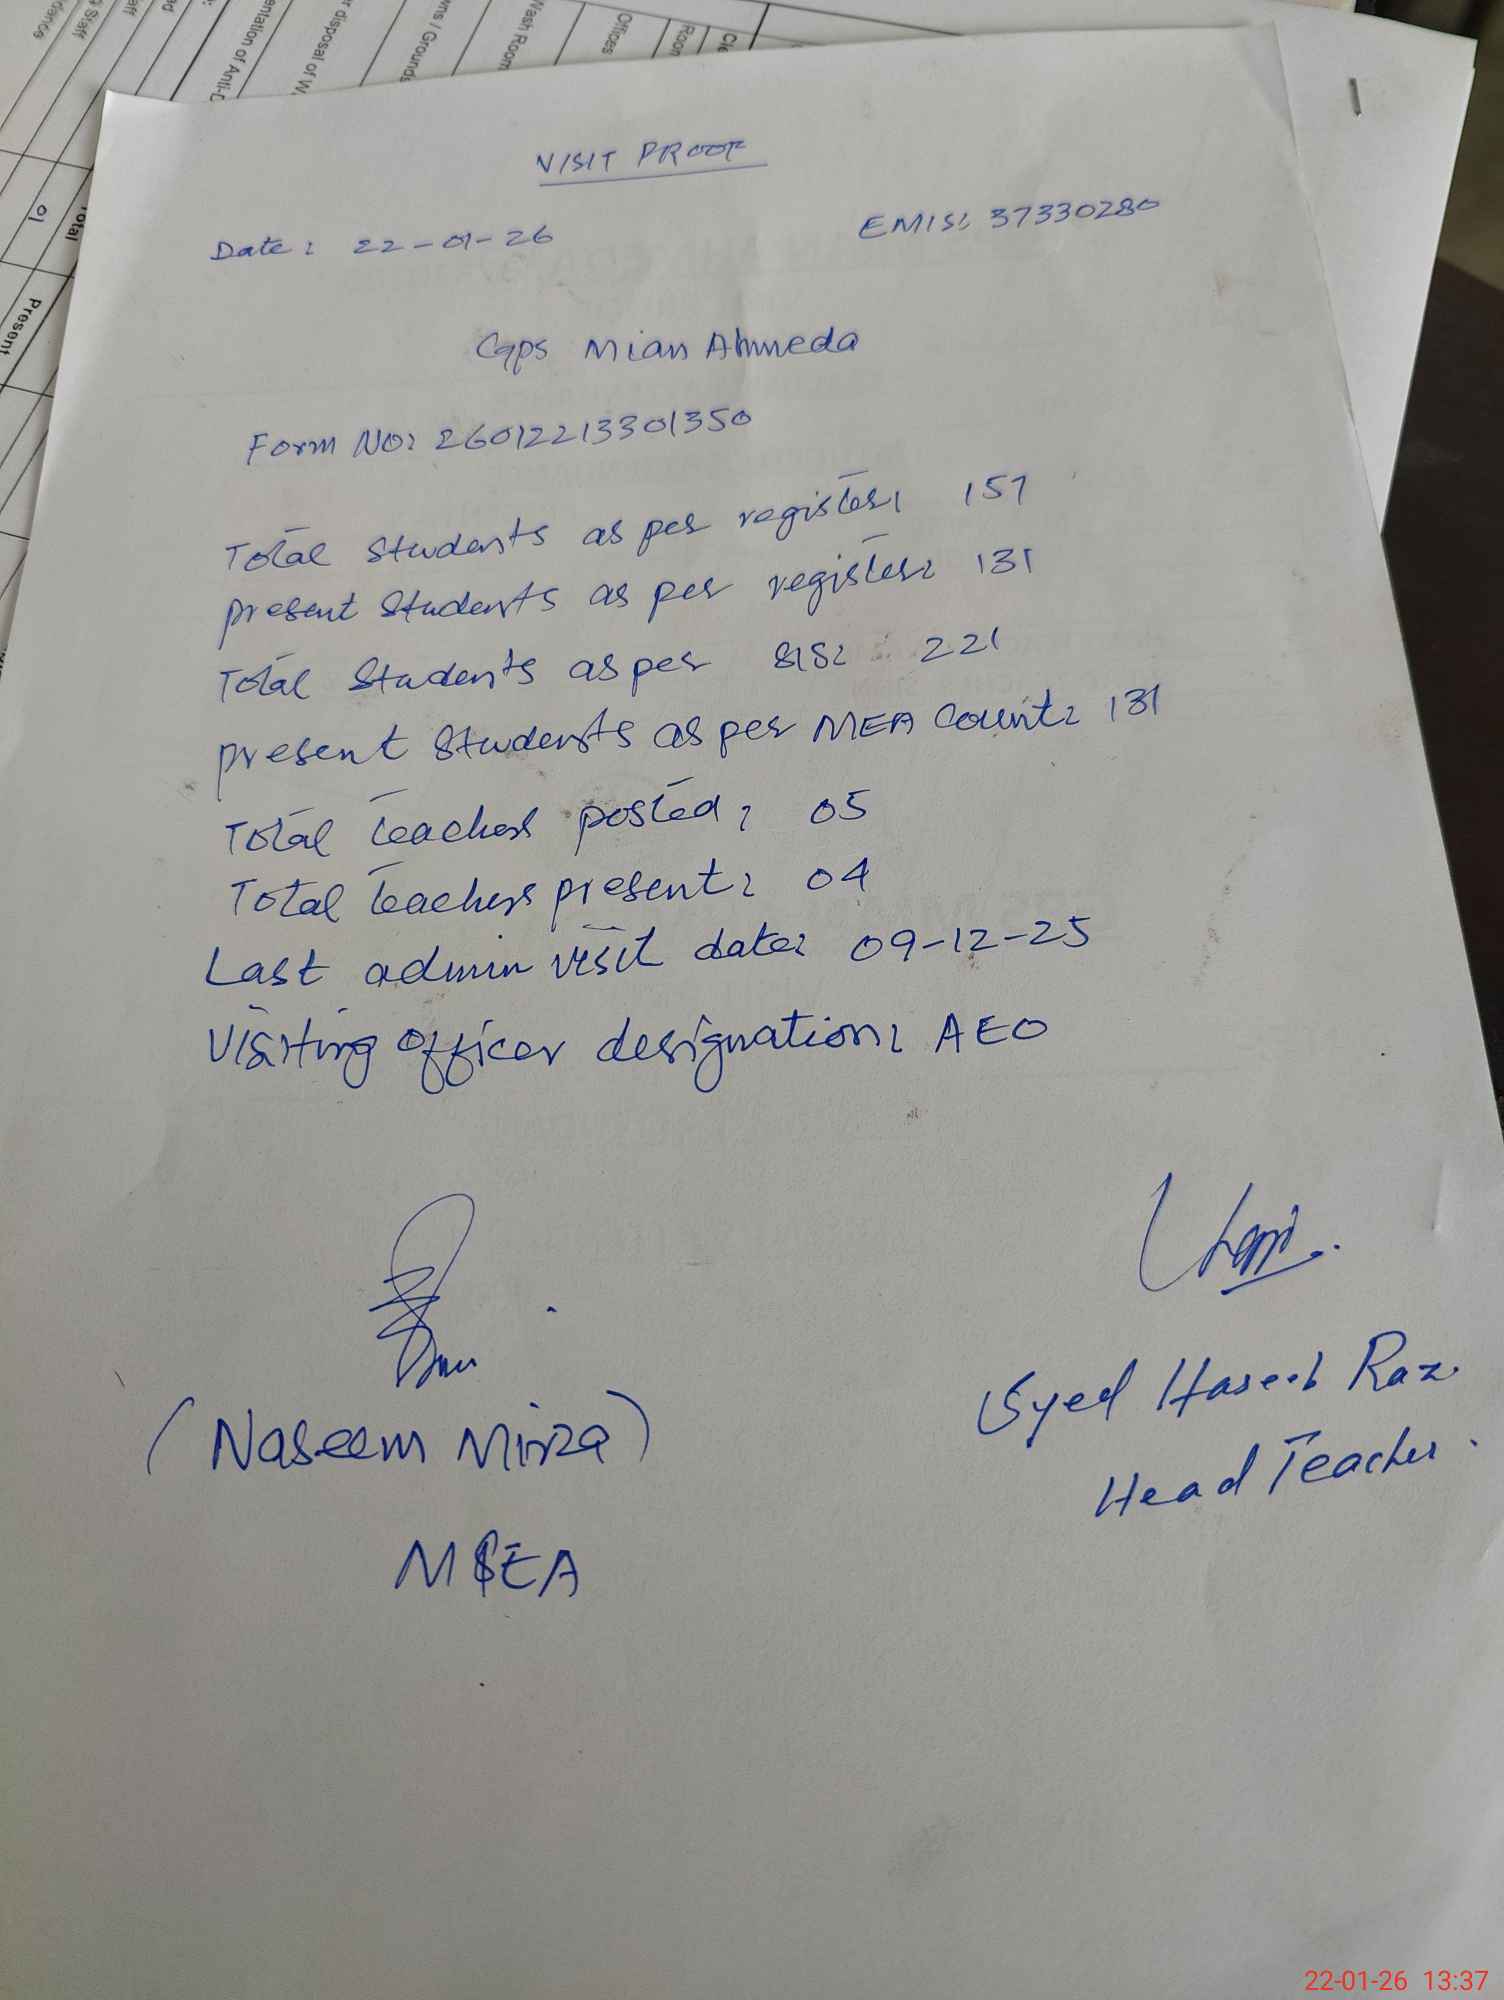 entation of Anti-D
r disposal of W
wns / Grounds
Wash Room
Offices
Room
Staff
Total
01
Present
VISIT PROOF
Date: 22-01-26
EMIS: 37330280
GPS Mian Ahmeda
Form NO: 26012213301350
Total Students as per register: 157
present Students as per register: 131
Total Students as per SIS: 221
present Students as per MEA Count: 131
Total teachers posted: 05
Total teachers present: 04
Last admin visit date: 09-12-25
Visiting Officer designation: AEO
(Naseem Mirza)
MEA
Syed Haseeb Raz
Head Teacher.
22-01-26 13:37